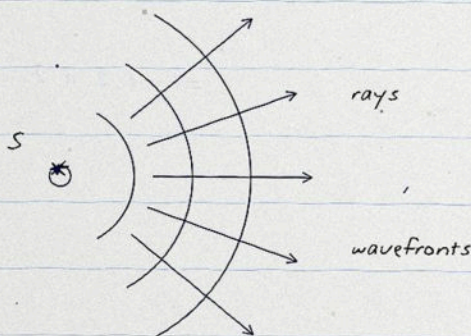 rays
S
wavefronts